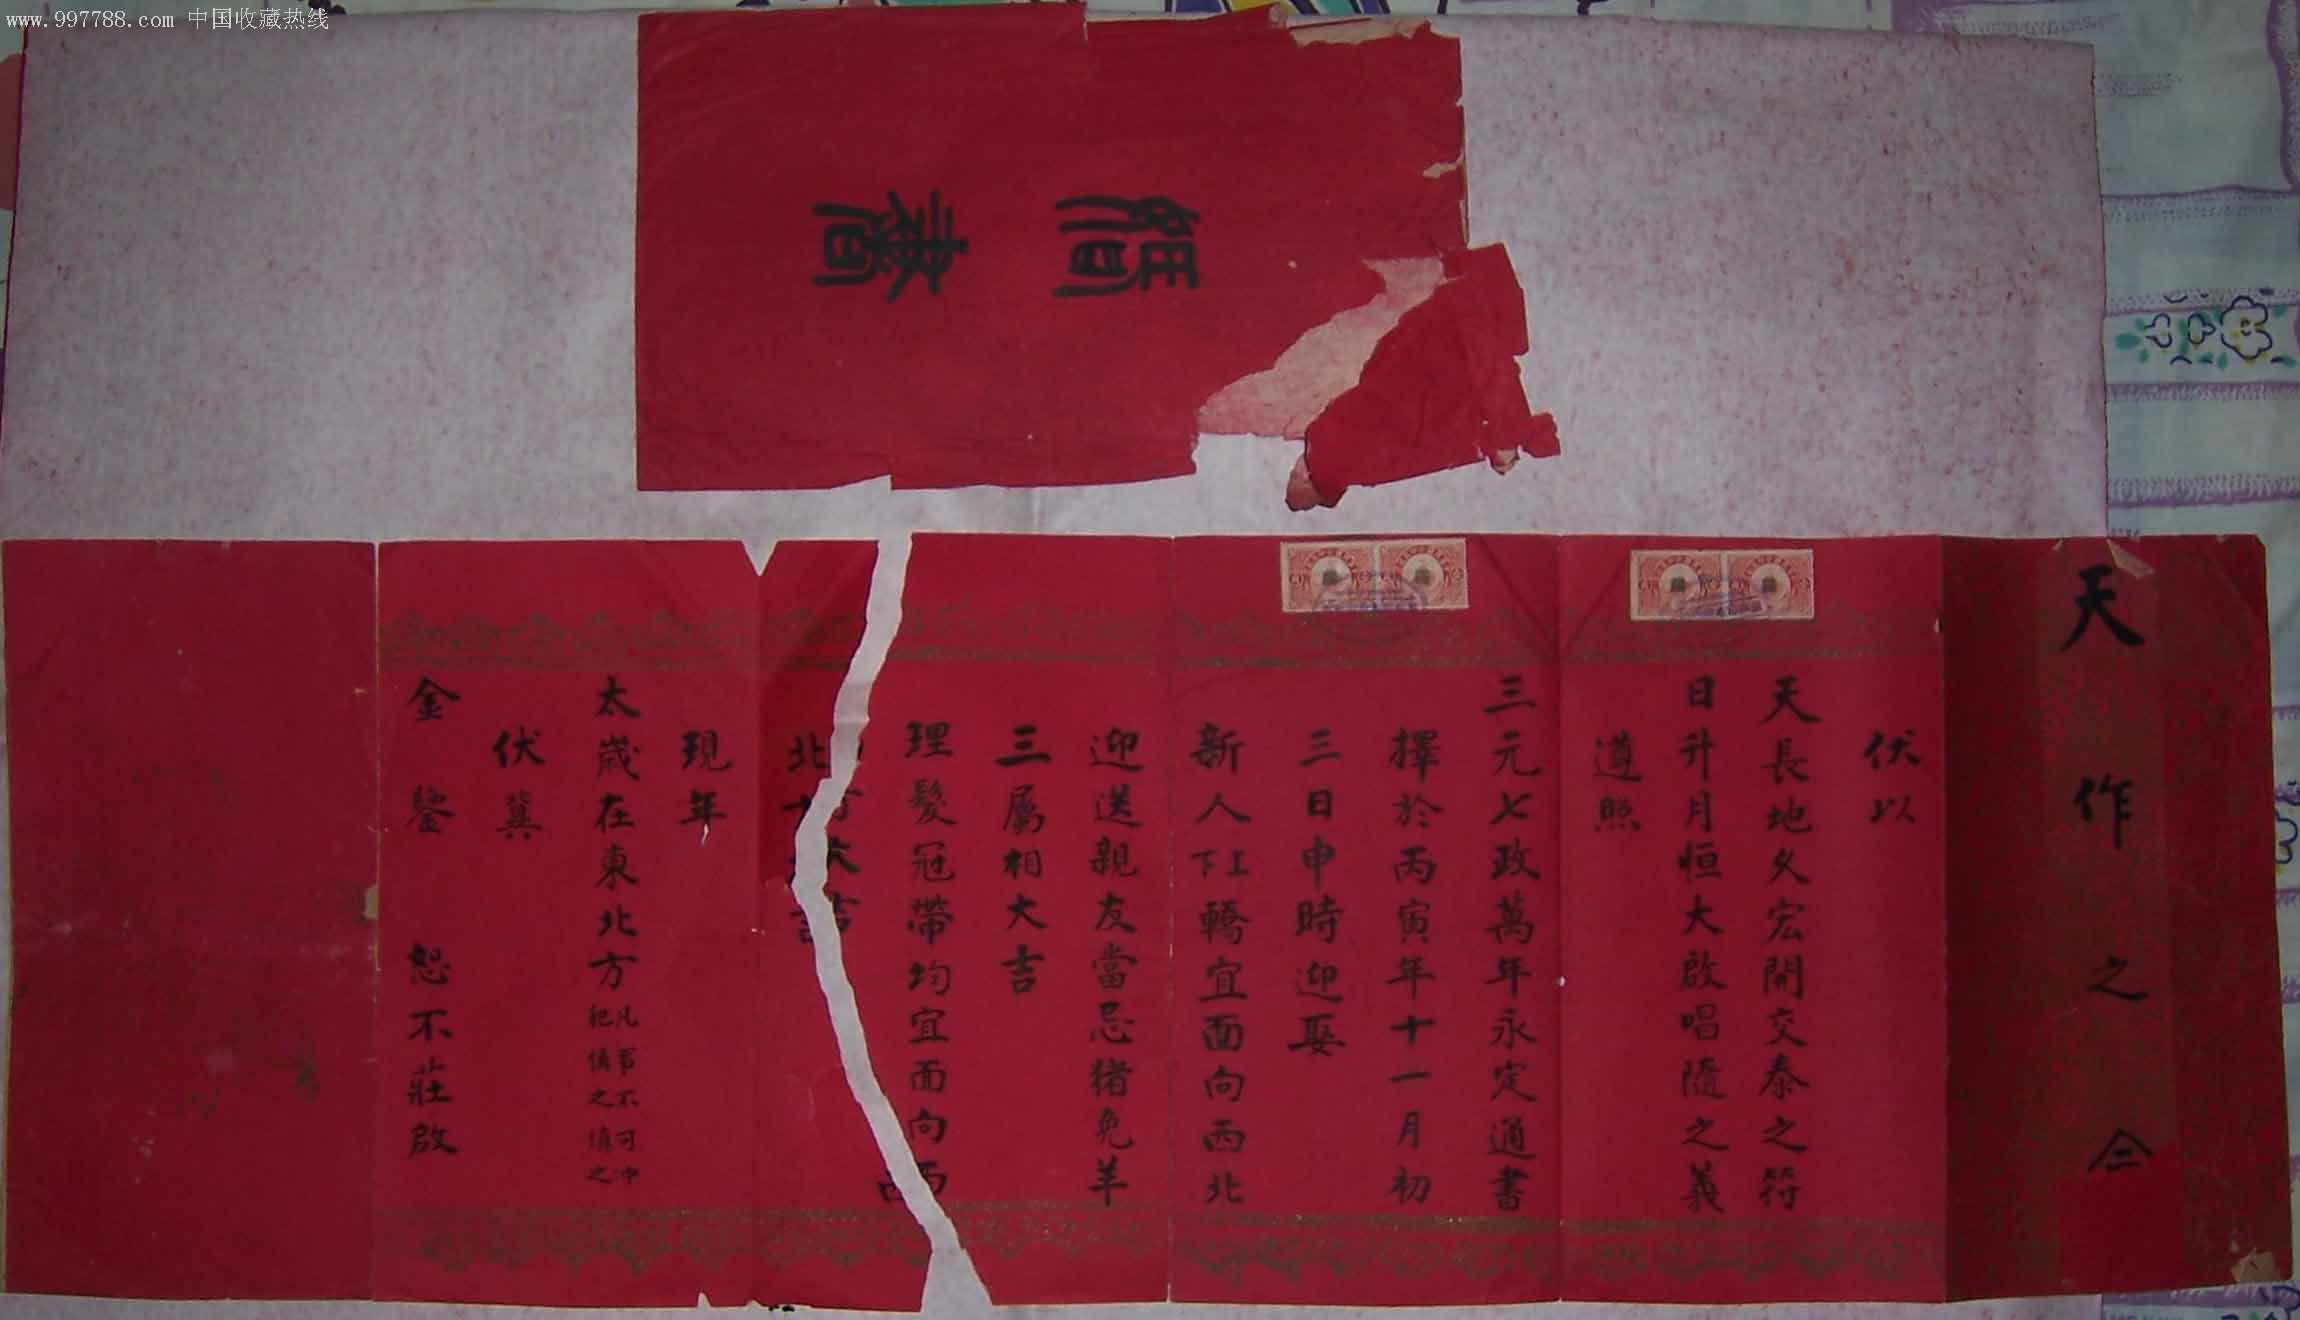 www.997788.com 中国收藏热线
天作之合
伏以
天長地久宏開交泰之符
日升月恒大啟唱隨之義
遵照
三元七政萬年永定通書
擇於丙寅年十一月初
三日申時迎娶
新人上下轎宜面向西北
迎送親友當忌猪兔羊
三屬相大吉
理髮冠帶均宜面向西
北
現年
太歲在東北方凡事不可冲犯慎之慎之
伏冀
金鑒 恕不莊啟